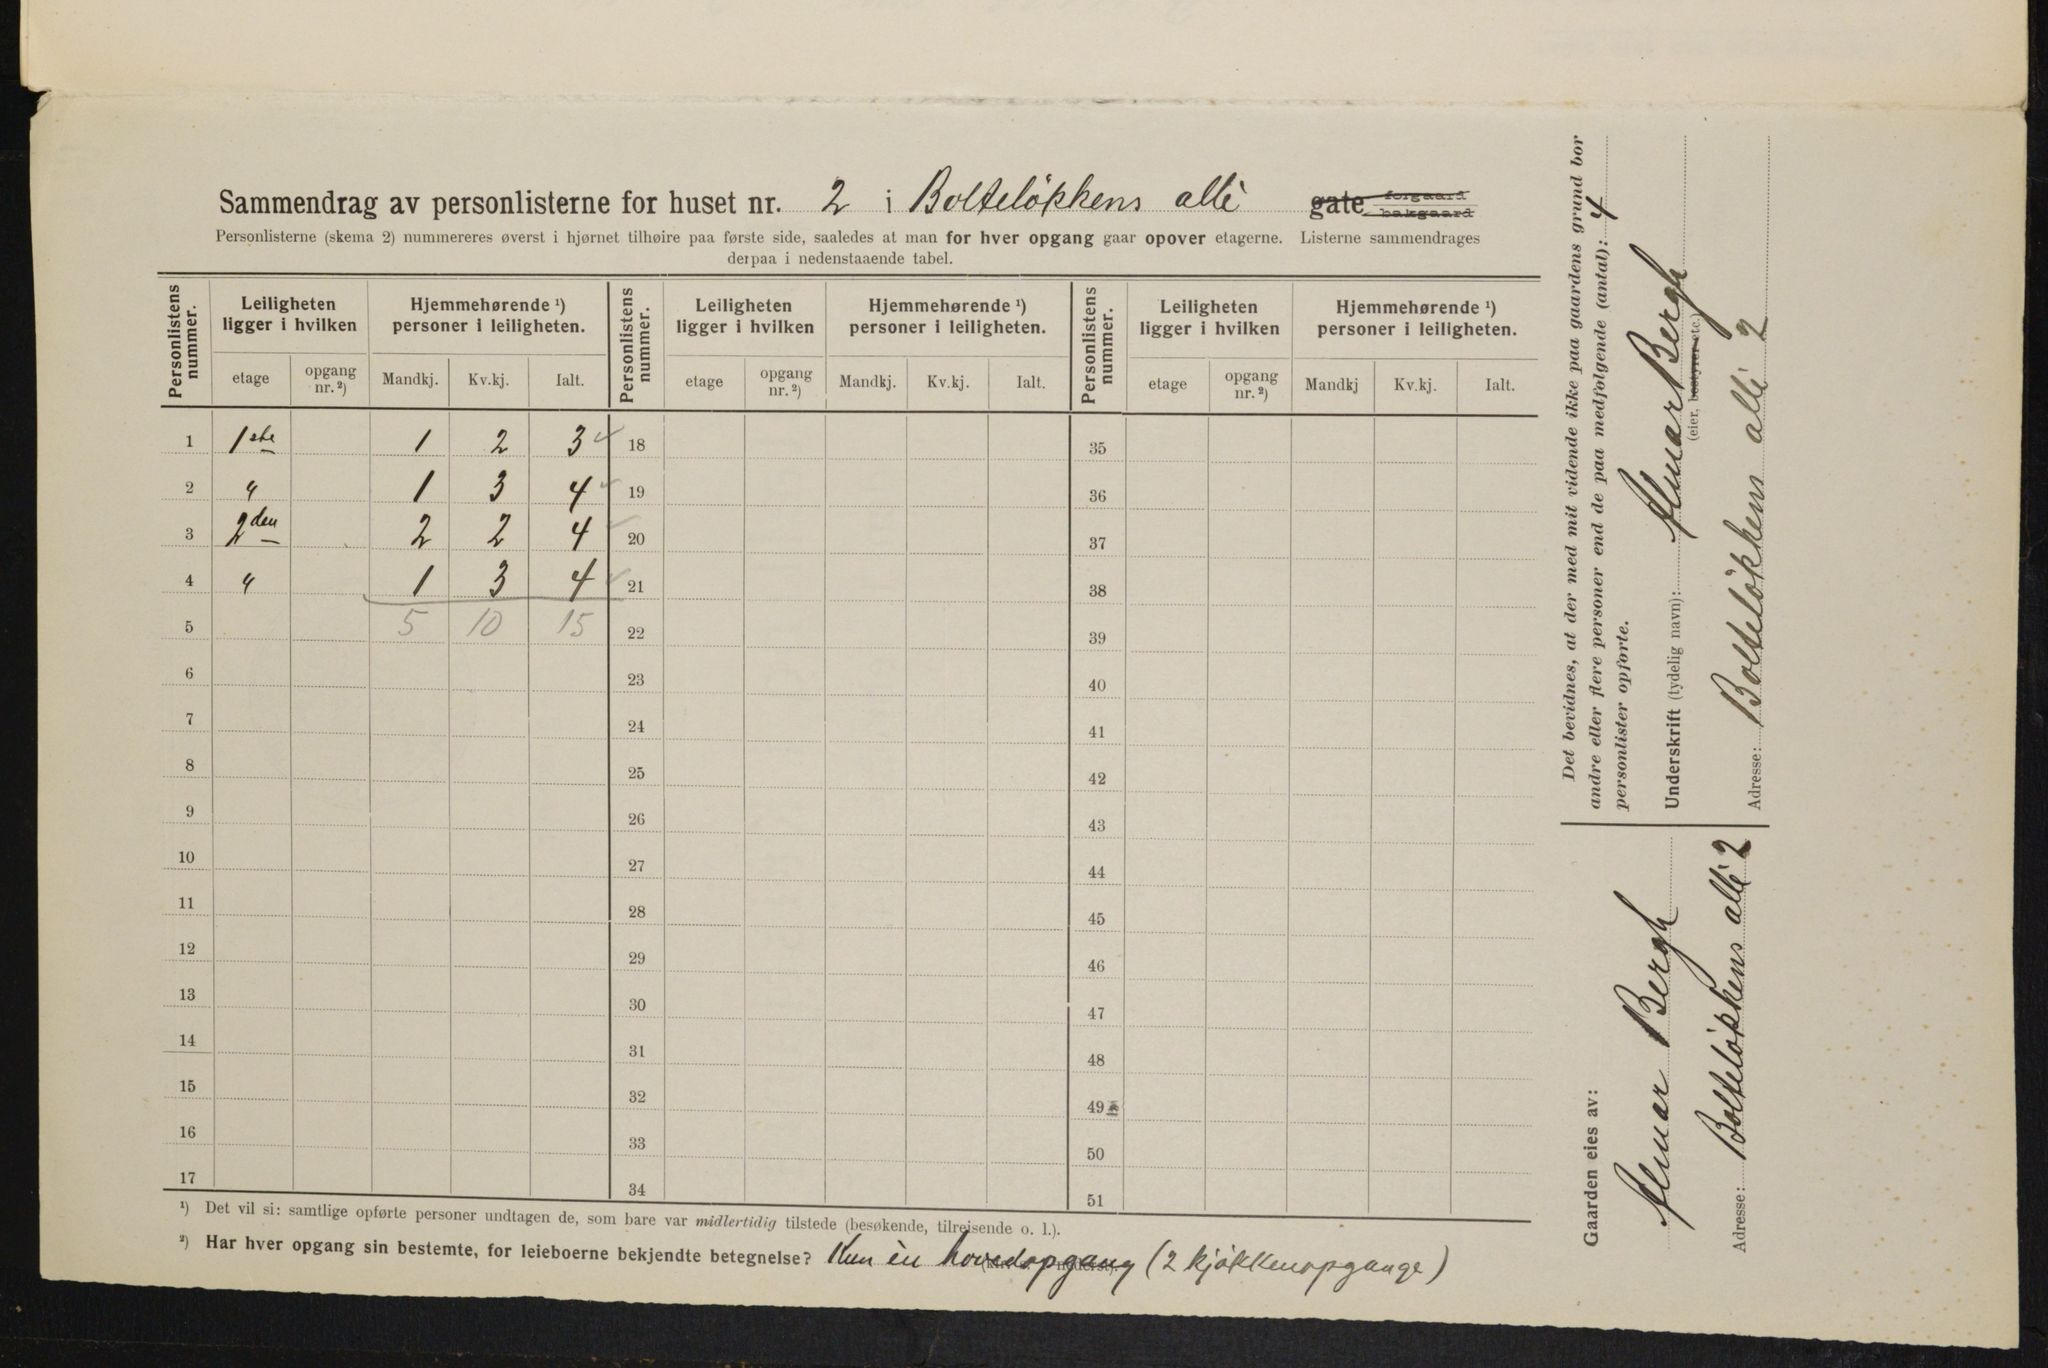 Sammendrag av personlisterne for huset nr. 2 i Bolteløkkens allè gate forgaard bakgaard
Personlisterne (skema 2) nummereres øverst i hjørnet tilhøire paa første side, saaledes at man for hver opgang gaar opover etagerne. Listerne sammendrages
derpaa i nedenstaaende tabel.
Personlistens nummer. Leiligheten ligger i hvilken Hjemmehørende ¹) personer i leiligheten. Personlistens nummer. Leiligheten ligger i hvilken Hjemmehørende ¹) personer i leiligheten. Personlistens nummer. Leiligheten ligger i hvilken Hjemmehørende ¹) personer i leiligheten.
etage opgang nr. ²) Mandkj. Kv.kj. Ialt. etage opgang nr. ²) Mandkj. Kv.kj. Ialt. etage opgang nr. ²) Mandkj Kv.kj. Ialt.
1 1ste 1 2 3 18 35
2 " 1 3 4 19 36
3 2den 2 2 4 20 37
4 " 1 3 4 21 38
5 5 10 15 22 39
6 23 40
7 24 41
8 25 42
9 26 43
10 27 44
11 28 45
12 29 46
13 30 47
14 31 48
15 32 49
16 33 50
17 34 51
¹) Det vil si: samtlige opførte personer undtagen de, som bare var midlertidig tilstede (besøkende, tilreisende o. l.).
²) Har hver opgang sin bestemte, for leieboerne bekjendte betegnelse? Kun èn hovedopgang (2 kjøkkenopgange)
Det bevidnes, at der med mit vidende ikke paa gaardens grund bor
andre eller flere personer end de paa medfolgende (antal): 4
personlister opforte.
Underskrift (tydelig navn): Almar Bergh
(eier, bestyrer etc.)
Adresse: Bolteløkkens allè 2
Gaarden eies av:
Almar Bergh
Adresse: Bolteløkkens allè 2